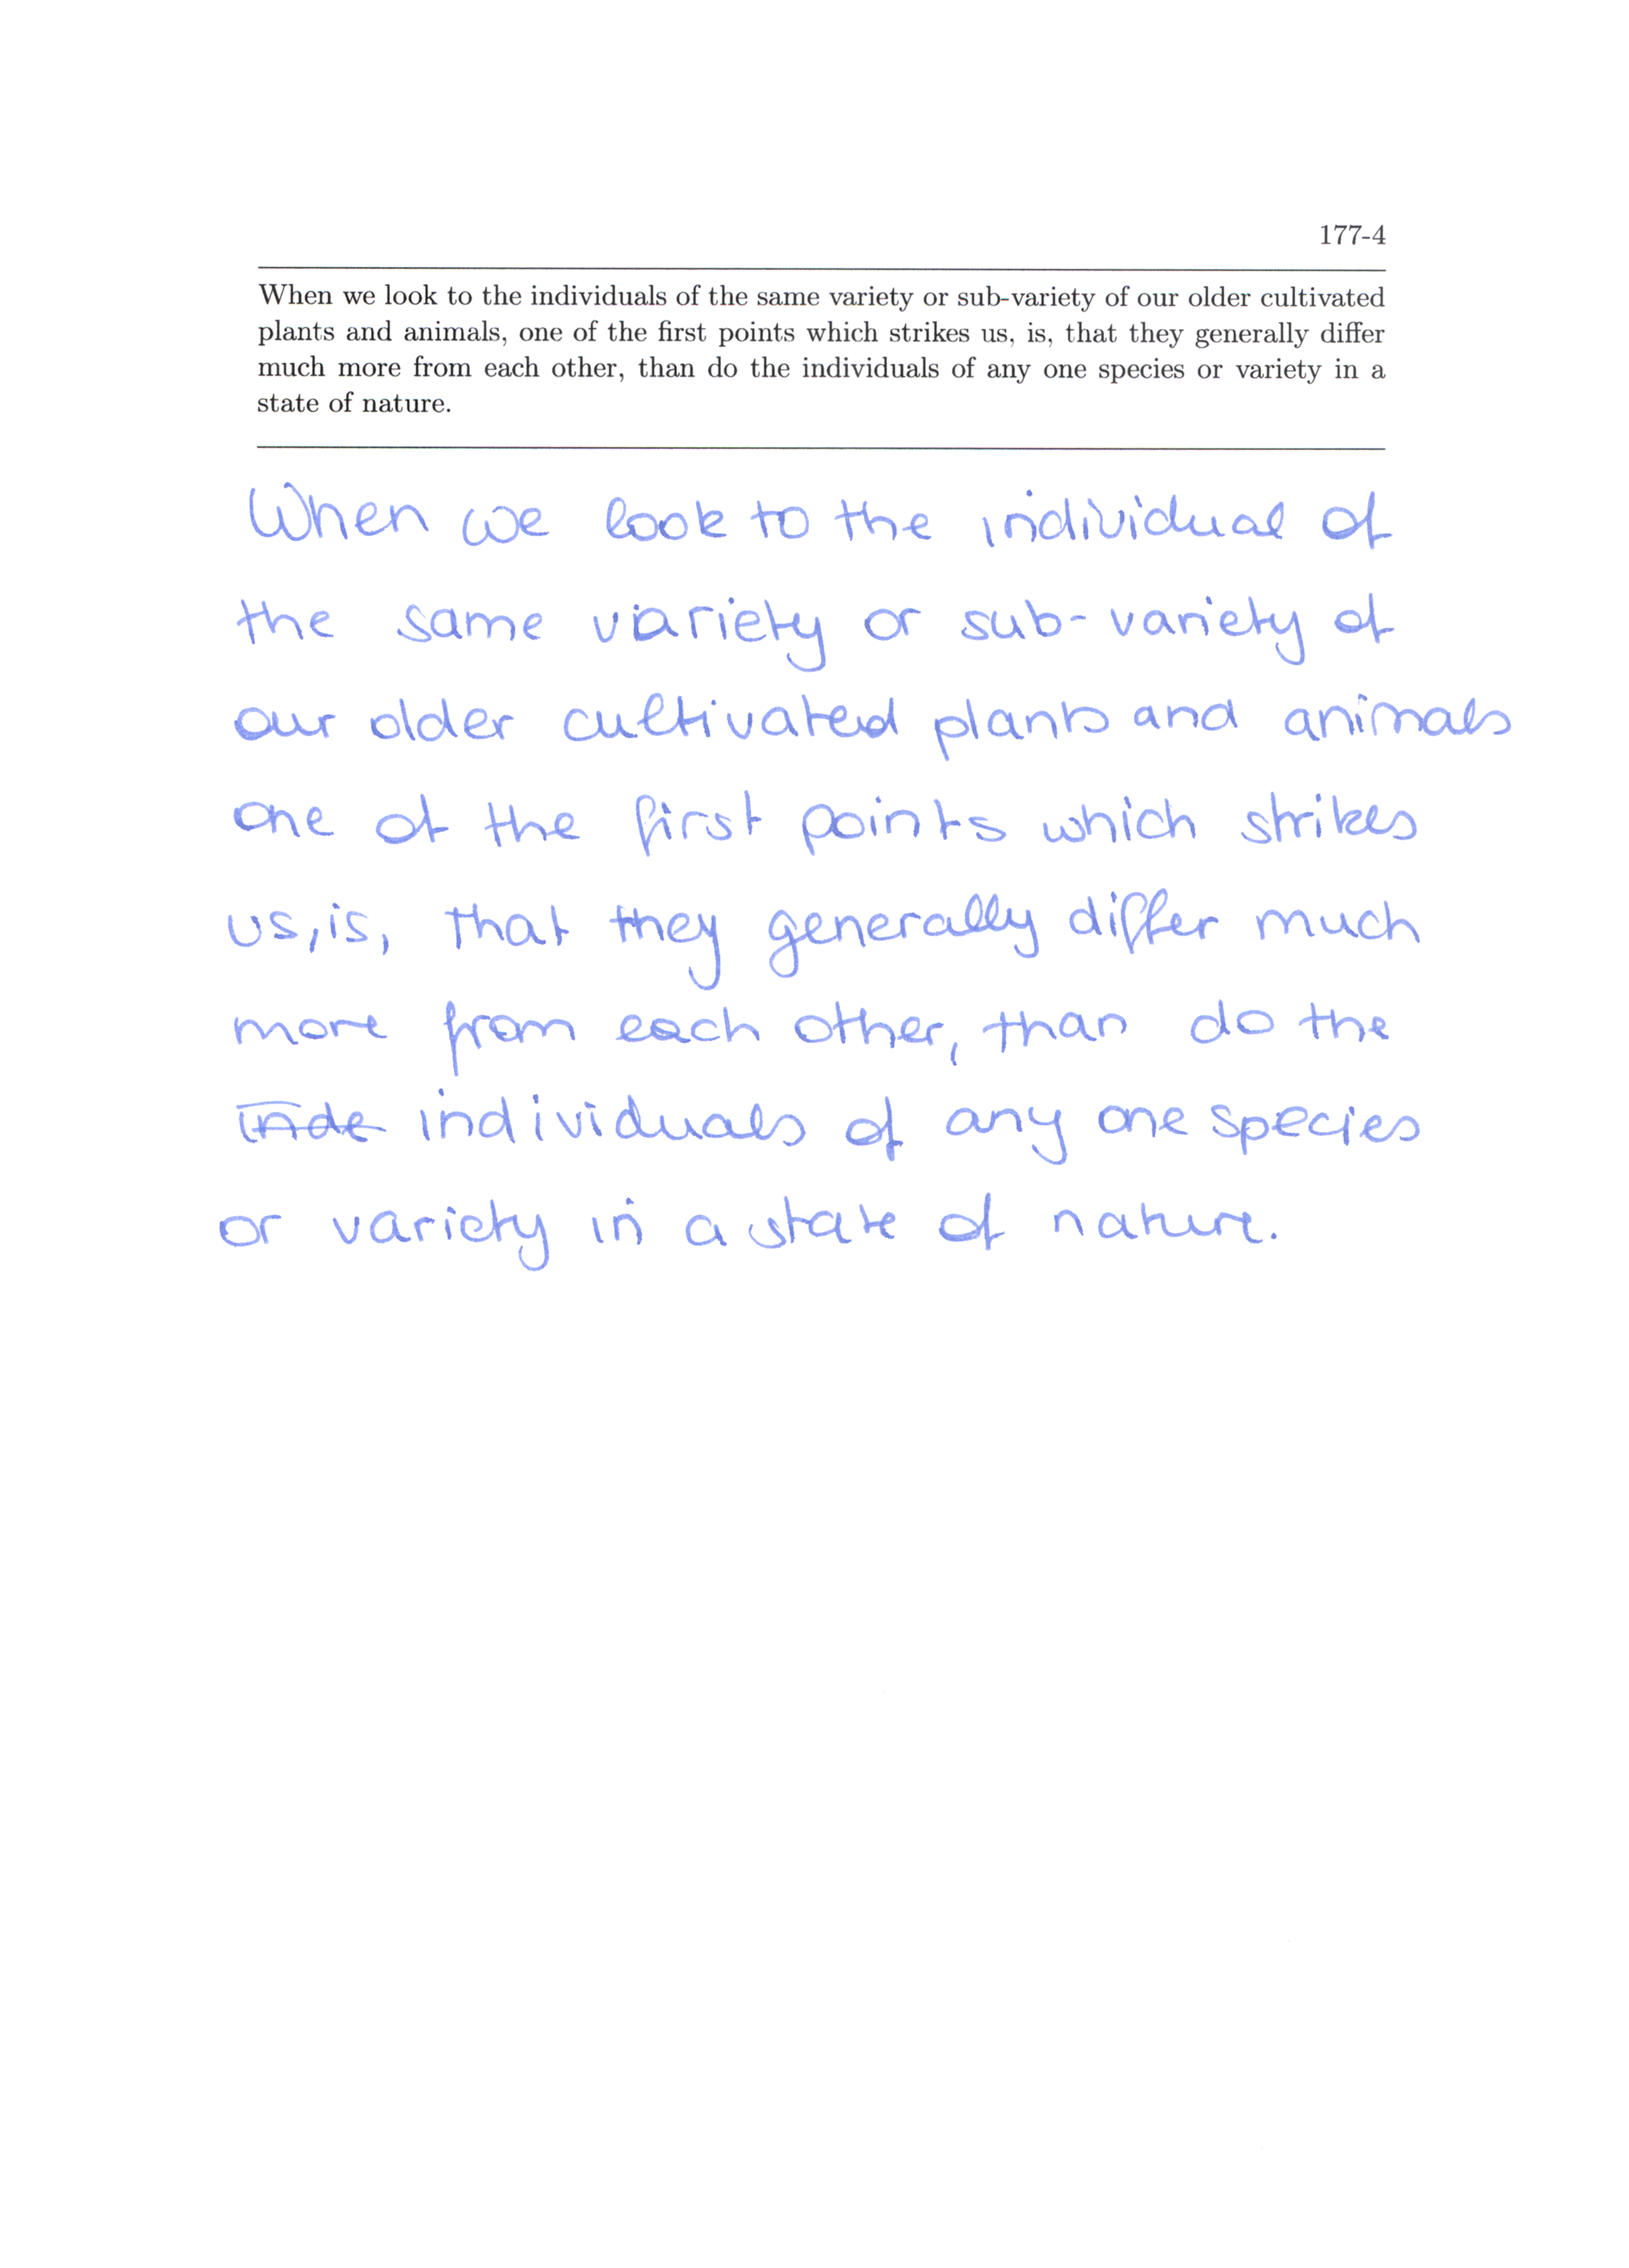 177-4
When we look to the individuals of the same variety or sub-variety of our older cultivated
plants and animals, one of the first points which strikes us, is, that they generally differ
much more from each other, than do the individuals of any one species or variety in a
state of nature.
When we look to the individual of
the same variety or sub-variety of
our older cultivated plants and animals
one of the first points which strikes
us, is, that they generally differ much
more from each other, than do the
inde individuals of any one species
or variety in a state of nature.